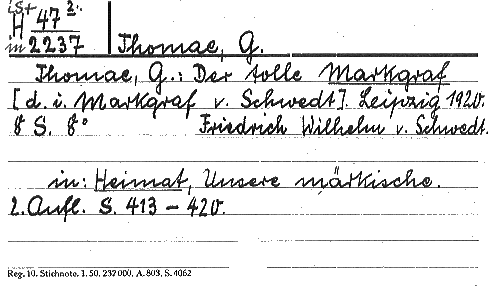 ist
H 47 2.
in 2237 Thomae, G.
Thomae, G.: Der tolle Markgraf
[d. i. Markgraf v. Schwedt]. Leipzig 1920.
8 S. 8° Friedrich Wilhelm v. Schwedt.
in: Heimat, Unsere märkische.
2. Aufl. S. 413 – 420.
Reg. 10. Stichnote. 1. 50. 237000. A. 803. S. 4062